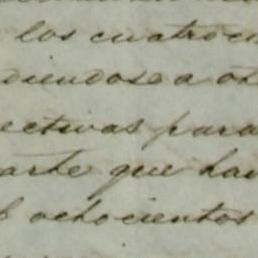 los cuatroci
diendose a ot
ectivas para
arte que hay
ochocientos